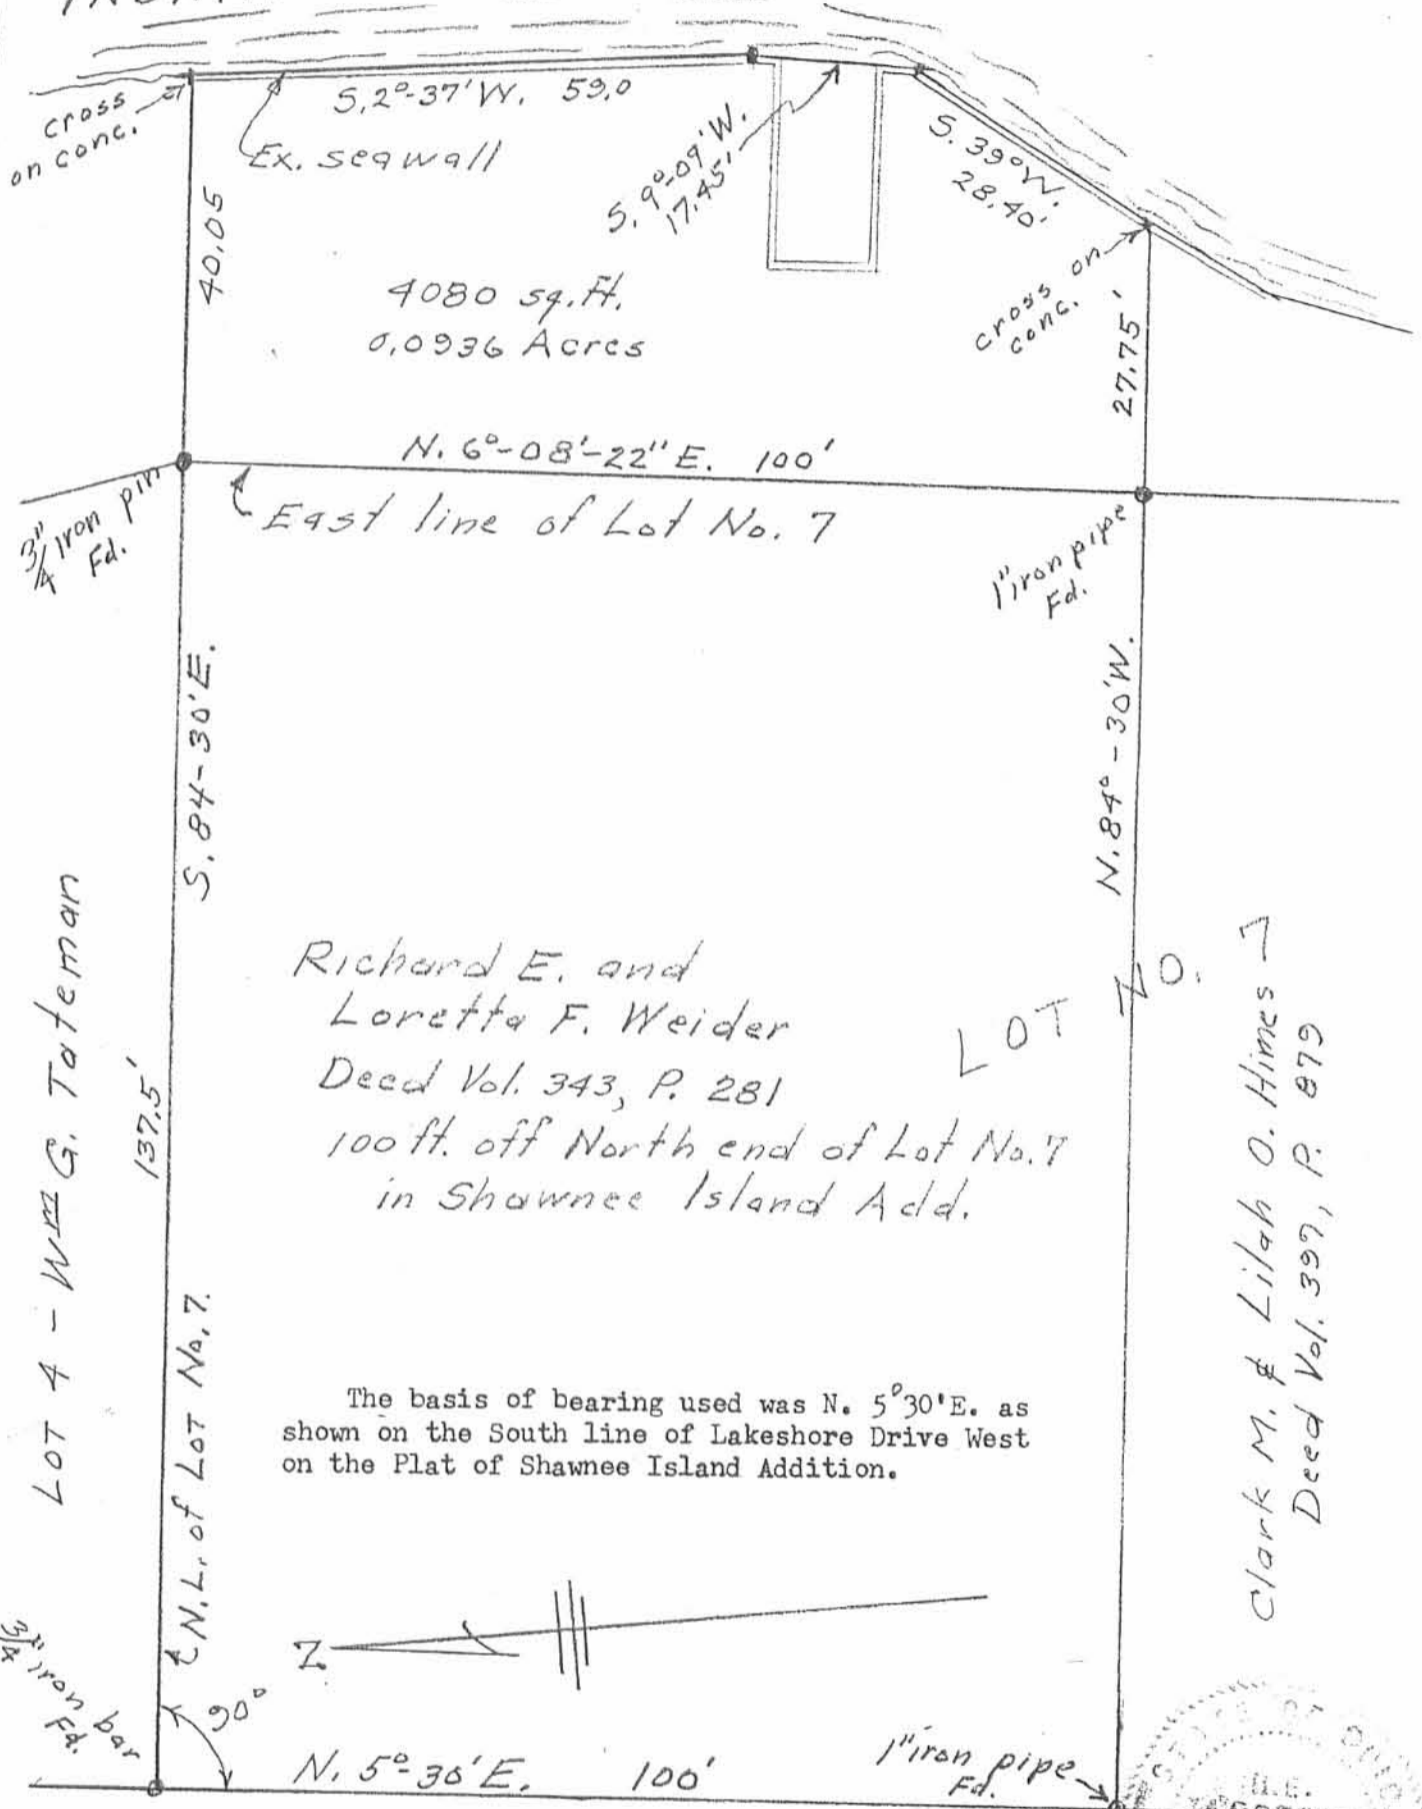 cross
on conc.
S. 2°-37' W. 59.0
Ex. seawall
S. 9°-09' W.
17.45'
S. 39° W.
28.40'
cross on
conc.
40.05
4080 sq. ft.
0.0936 Acres
27.75'
N. 6°-08'-22" E. 100'
East line of Lot No. 7
3/4" iron pin
Fd.
1" iron pipe
Fd.
S. 84-30' E.
N. 84°-30' W.
LOT 4 - Wm G. Tateman
137.5'
Richard E. and
Loretta F. Weider
Deed Vol. 343, P. 281
100 ft. off North end of Lot No. 7
in Shawnee Island Add.
LOT NO. 7
Clark M. & Lilah O. Himes
Deed Vol. 397, P. 879
N.L. of LOT No. 7.
The basis of bearing used was N. 5°30'E. as
shown on the South line of Lakeshore Drive West
on the Plat of Shawnee Island Addition.
N
3/4" iron bar
Fd.
90°
N. 5°-30' E. 100'
1" iron pipe
Fd.
STATE OF OHIO